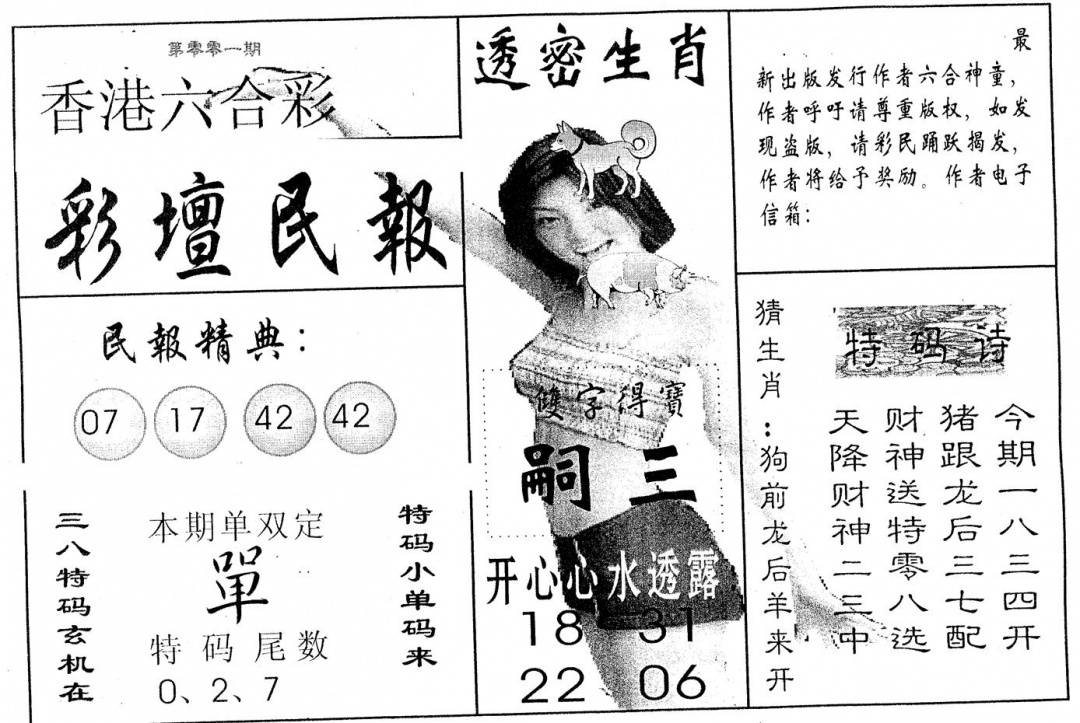 第零零一期
香港六合彩
彩壇民報
民報精典：
07 17 42 42
三八特码玄机在
本期单双定
單
特码尾数
0、2、7
特码小单码来
透密生肖
雙字得寶
嗣 三
开心心水透露
18 31
22 06
最
新出版发行作者六合神童，
作者呼吁请尊重版权，如发
现盗版，请彩民踊跃揭发，
作者将给予奖励。作者电子
信箱：
猜生肖：狗前龙后羊来开
特码诗
今期一八三四开
猪跟龙后三七配
财神送特零八选
天降财神二三中